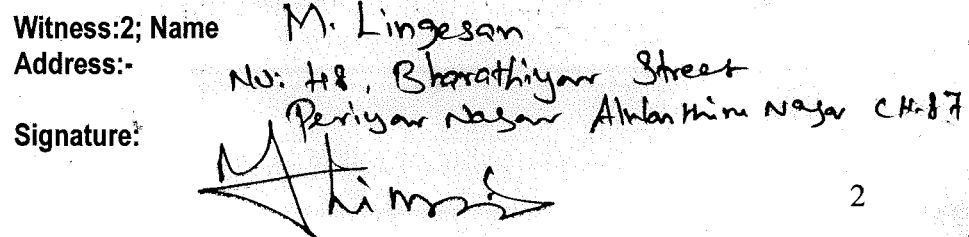 Witness:2; Name M. Lingesan
Address:-
No: 48, Bharathiyar Street
Periyar Nagar Alwarthiru Nagar CH-87
Signature:
2